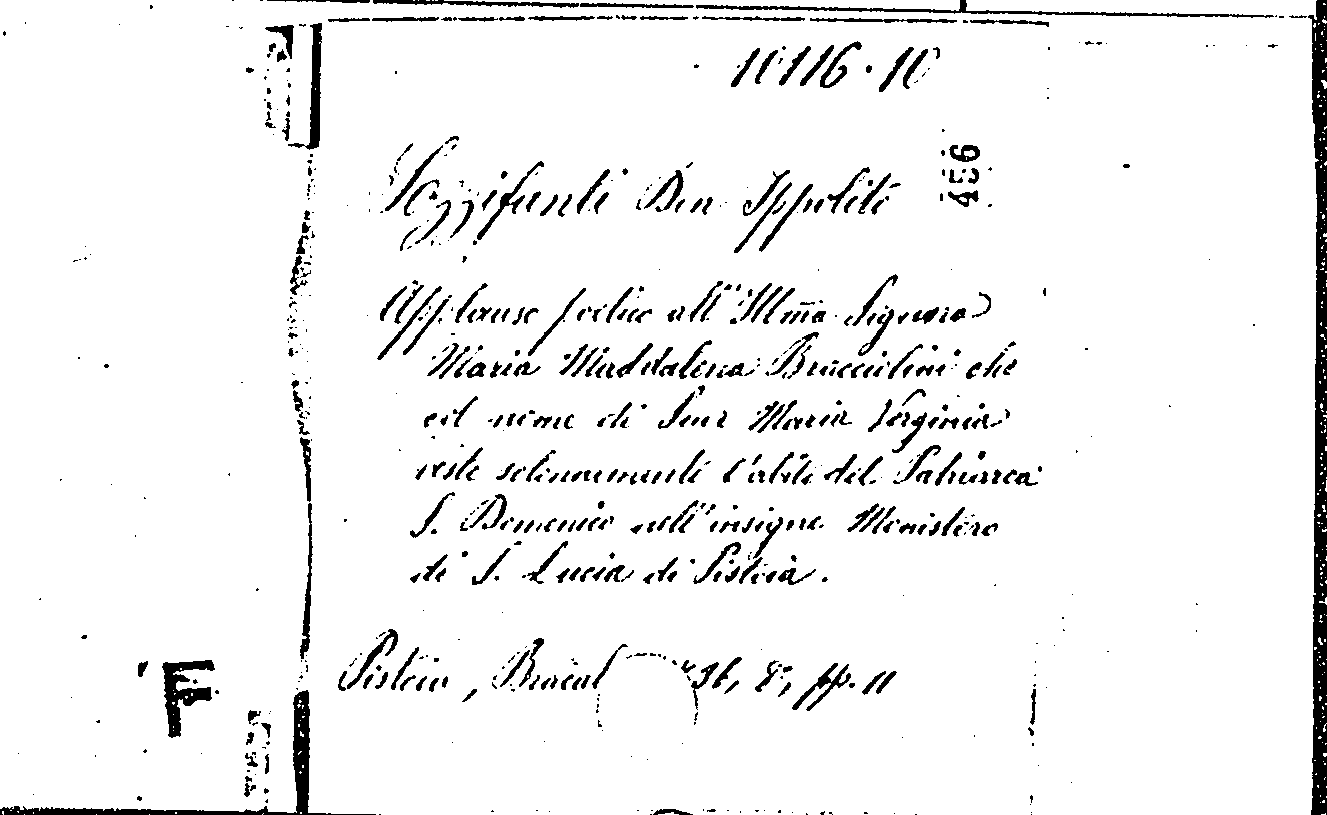 10116.10
456
Sozzifanti Don Ippolito
Applauso poetico all'Illma Signora
Maria Maddalena Bracciolini che
col nome di Suor Maria Verginia
veste solennemente l'abito del Patriarca
S. Domenico nell'insigne Monistero
di S. Lucia di Pistoia.
Pistoia, 8°, pp. 11
F